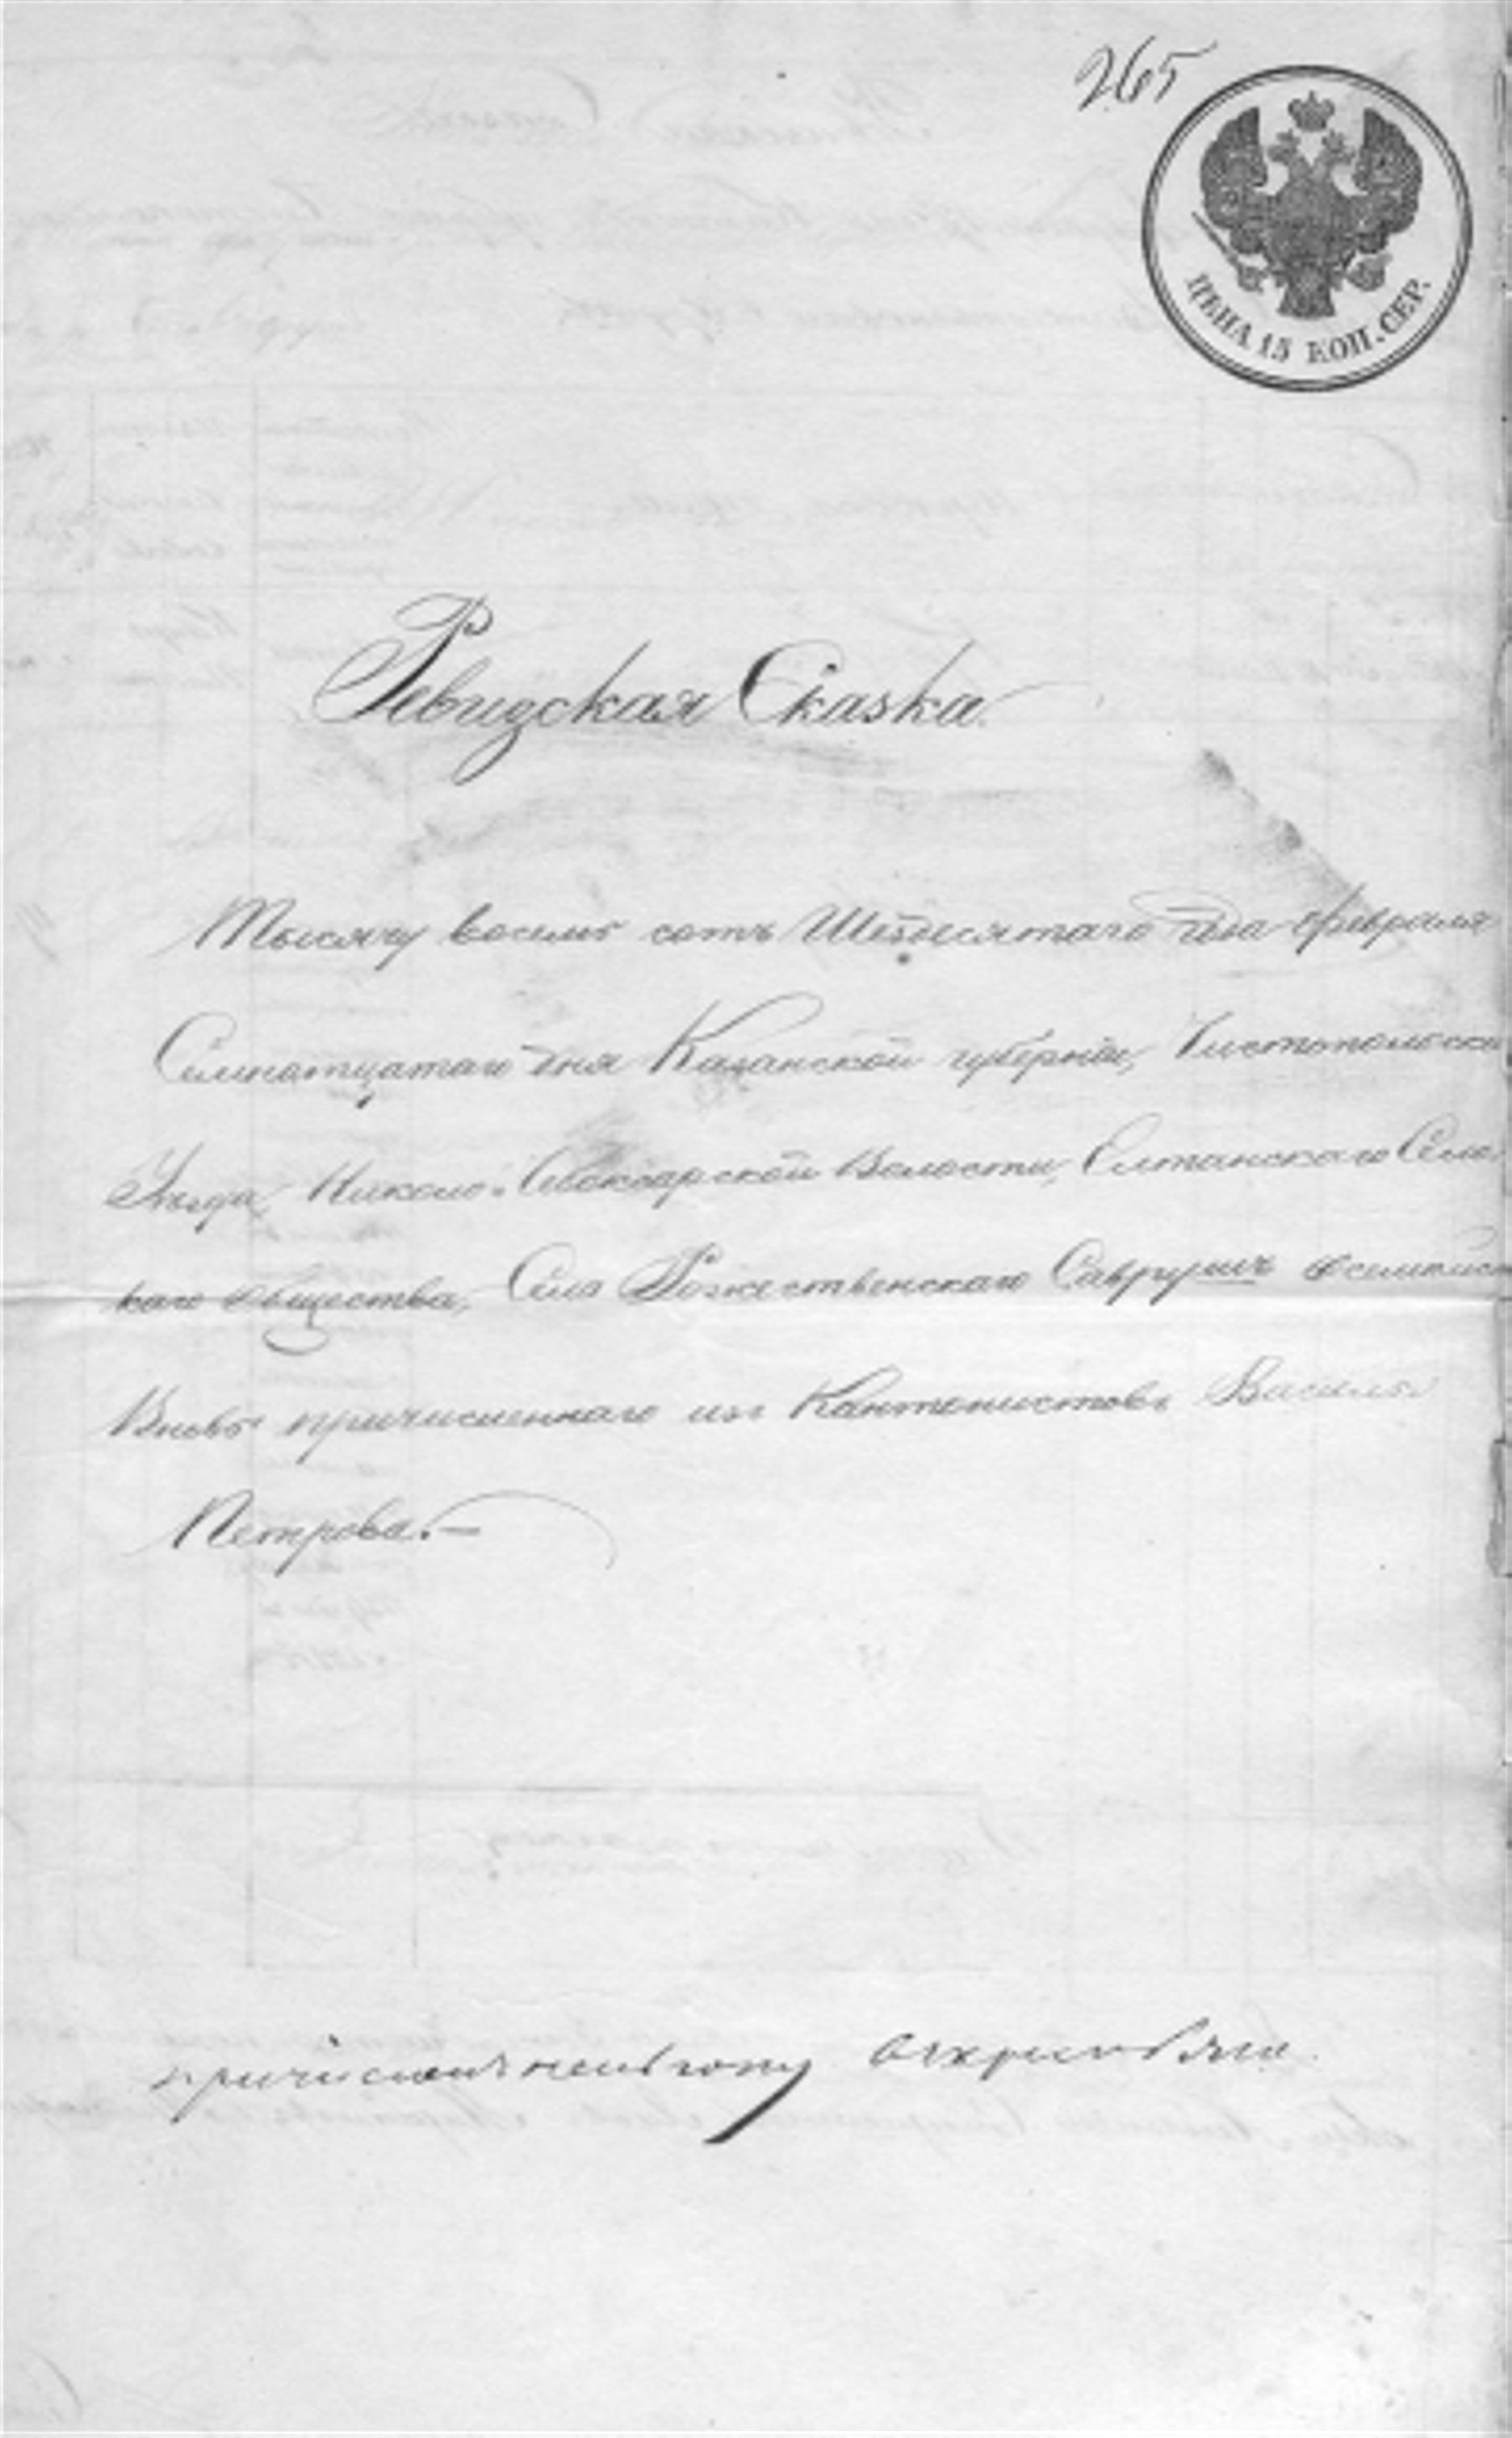 265
ЦѢНА 15 КОП. СЕР.
Ревидская Сказка.
Тысячу восемь сотъ Шездесятаго года февраля
Семнатцатаго дня Казанской губерніи, Чистопольска
Уѣзда, Николо-Чебоксарской Волости, Елтанскаго Сель.
каго общества, Села Рожественскаго Саврушъ о
Вновь причисленнаго из Кантонистовъ Василья
Петрова.—